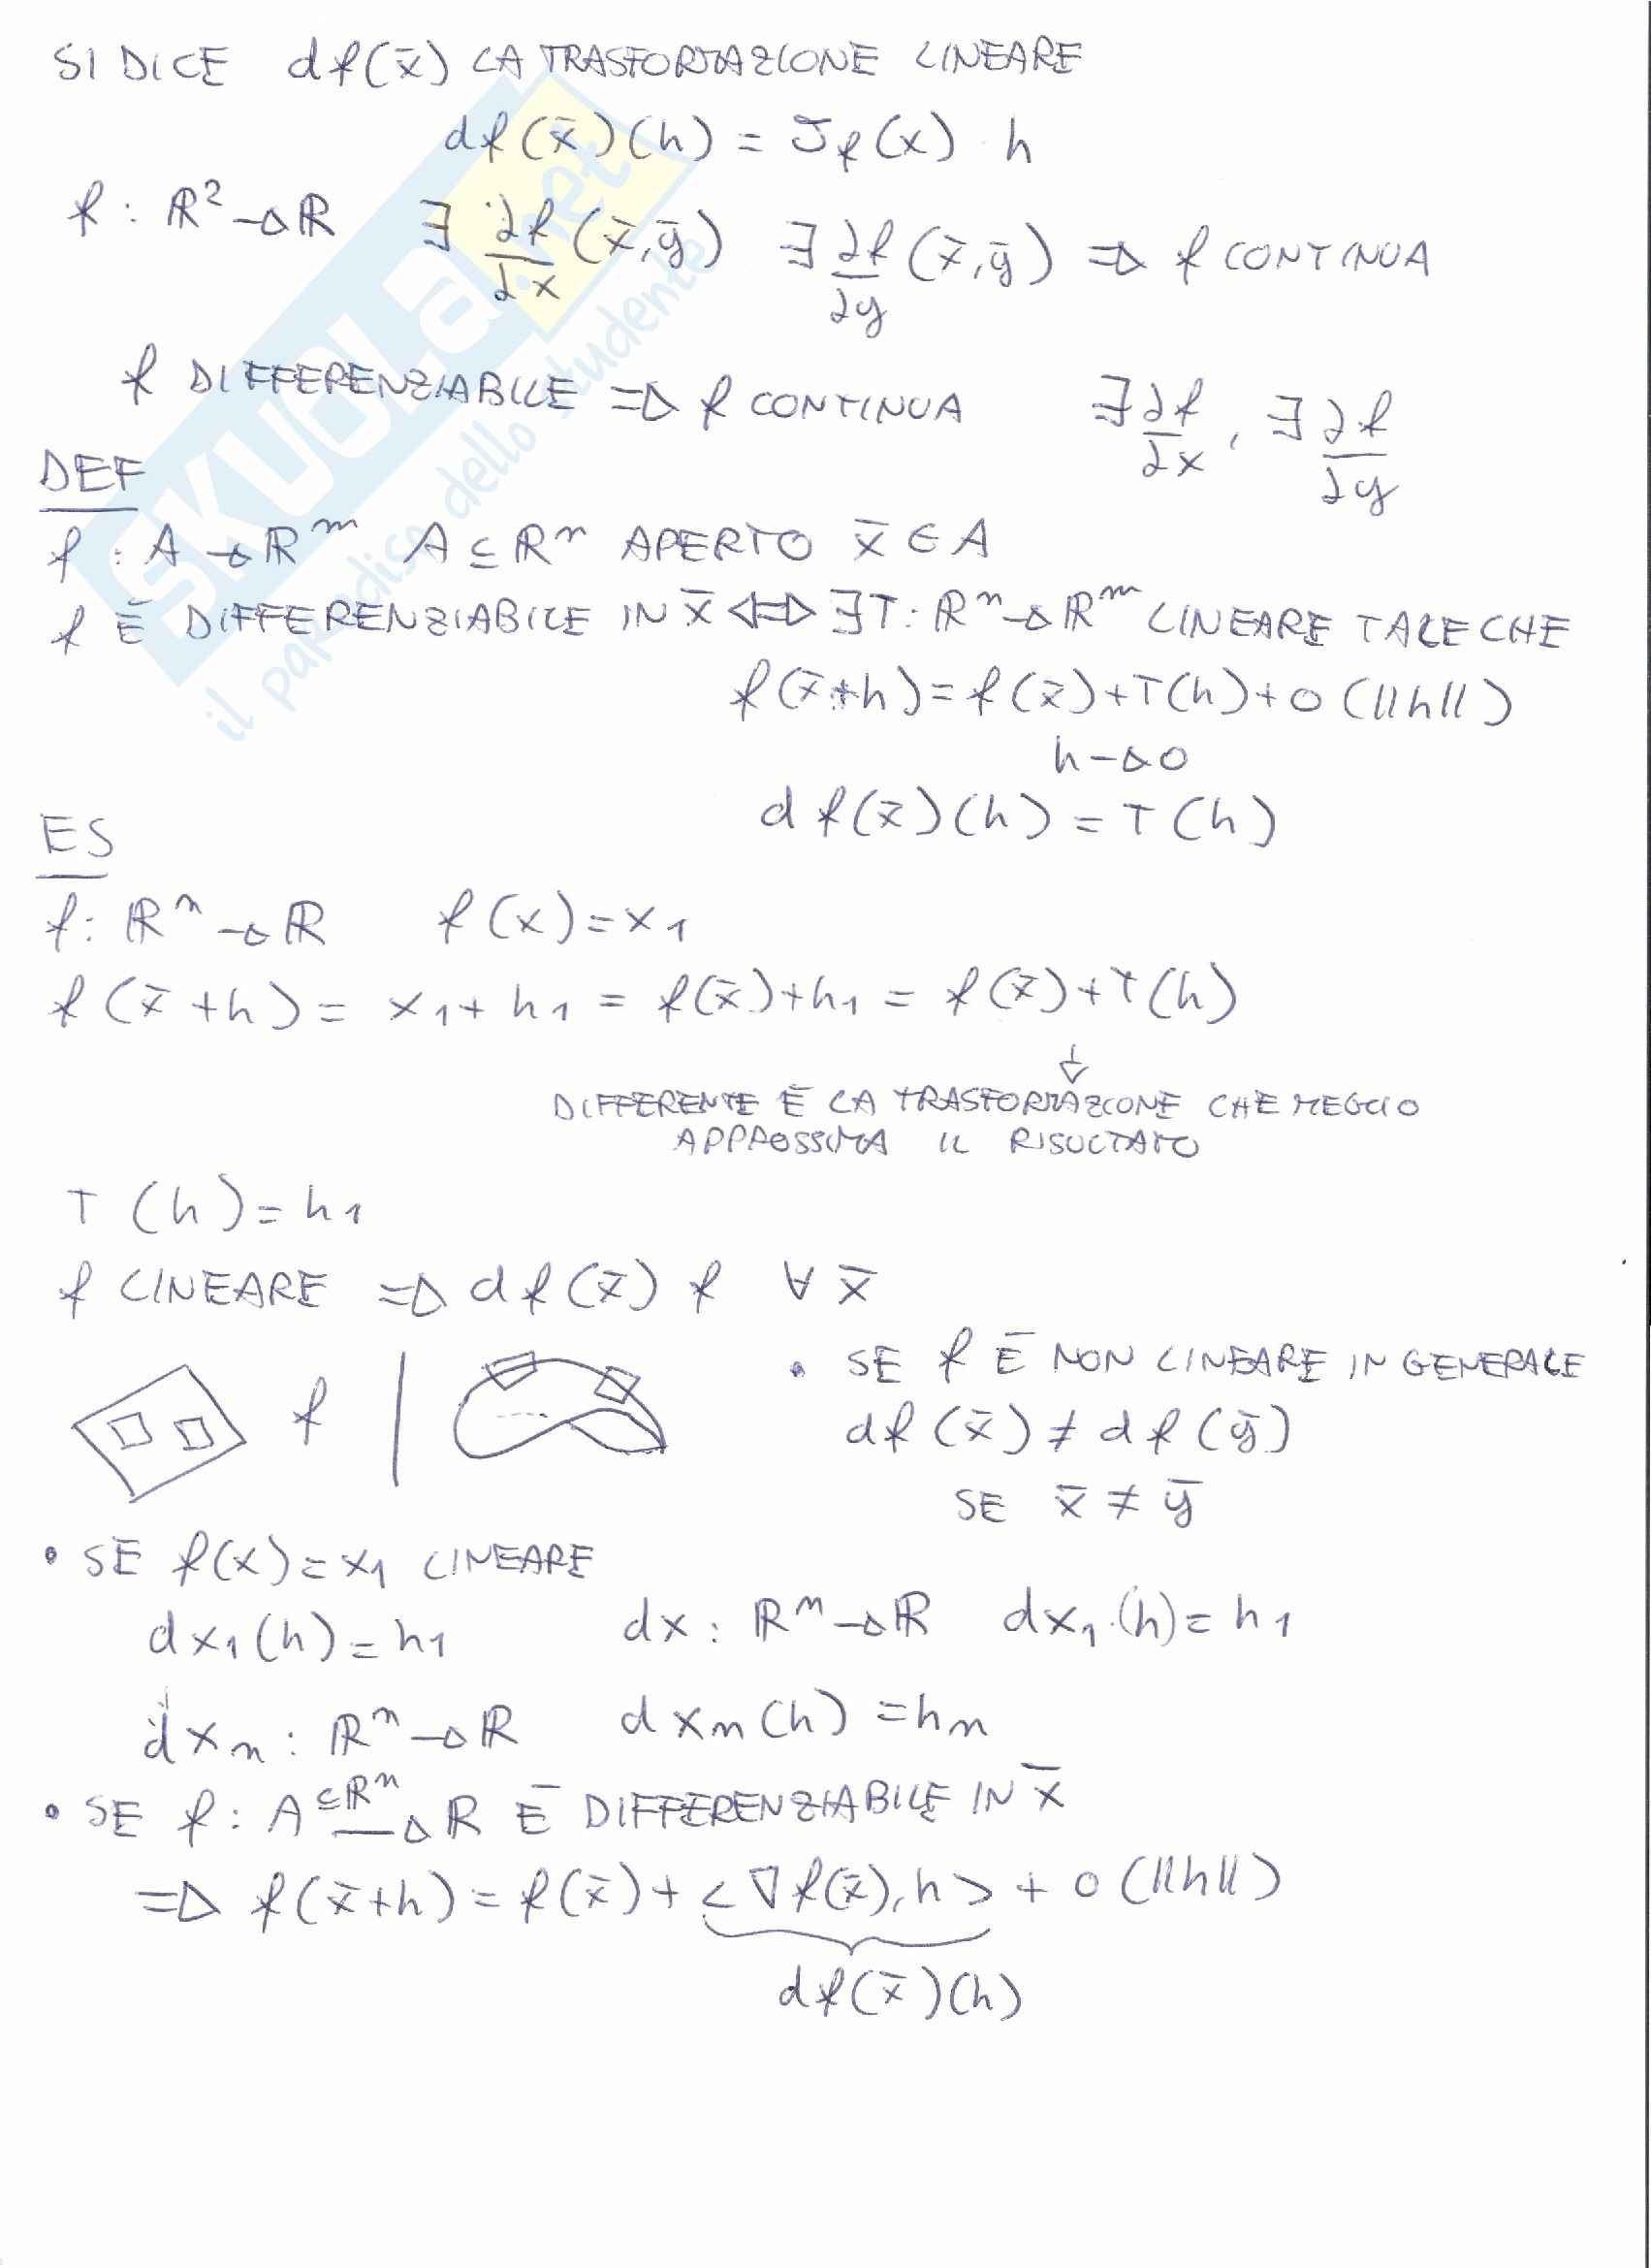 SI DICE df(x̄) LA TRASFORMAZIONE LINEARE
df(x̄)(h) = Jf(x) · h
f : ℝ² → ℝ ∃ ∂f/∂x (x̄,ȳ) ∃ ∂f/∂y (x̄,ȳ) ⇒ f CONTINUA
f DIFFERENZIABILE ⇒ f CONTINUA ∃ ∂f/∂x , ∃ ∂f/∂y
DEF
f : A → ℝᵐ A ⊆ ℝⁿ APERTO x̄ ∈ A
f È DIFFERENZIABILE IN x̄ ⇔ ∃ T : ℝⁿ → ℝᵐ LINEARE TALE CHE
f(x̄+h) = f(x̄) + T(h) + o(||h||)
h → 0
df(x̄)(h) = T(h)
ES
f : ℝⁿ → ℝ f(x) = x₁
f(x̄+h) = x₁ + h₁ = f(x̄) + h₁ = f(x̄) + T(h)
↓
DIFFERENTE È LA TRASFORMAZIONE CHE MEGLIO
APPROSSIMA IL RISULTATO
T(h) = h₁
f LINEARE ⇒ df(x̄) f ∀ x̄
f
• SE f È NON LINEARE IN GENERALE
df(x̄) ≠ df(ȳ)
SE x̄ ≠ ȳ
• SE f(x) = x₁ LINEARE
dx₁(h) = h₁ dx : ℝⁿ → ℝ dx₁·(h) = h₁
dxₙ : ℝⁿ → ℝ dxₙ(h) = hₙ
• SE f : A ⊆ ℝⁿ → ℝ È DIFFERENZIABILE IN x̄
⇒ f(x̄+h) = f(x̄) + <∇f(x̄), h> + o(||h||)
df(x̄)(h)
SKUOLA.net
il paradiso dello studente